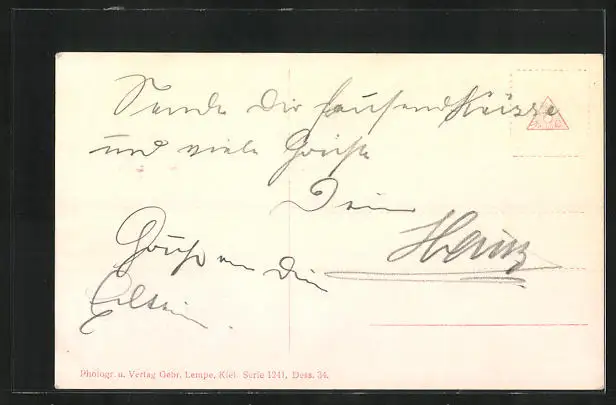 Sende Dir tausend Küsse
und viele Grüße
Dein
Heinz
Grüße an Deine
Photogr. u. Verlag Gebr. Lempe, Kiel. Serie 1241, Dess. 34.